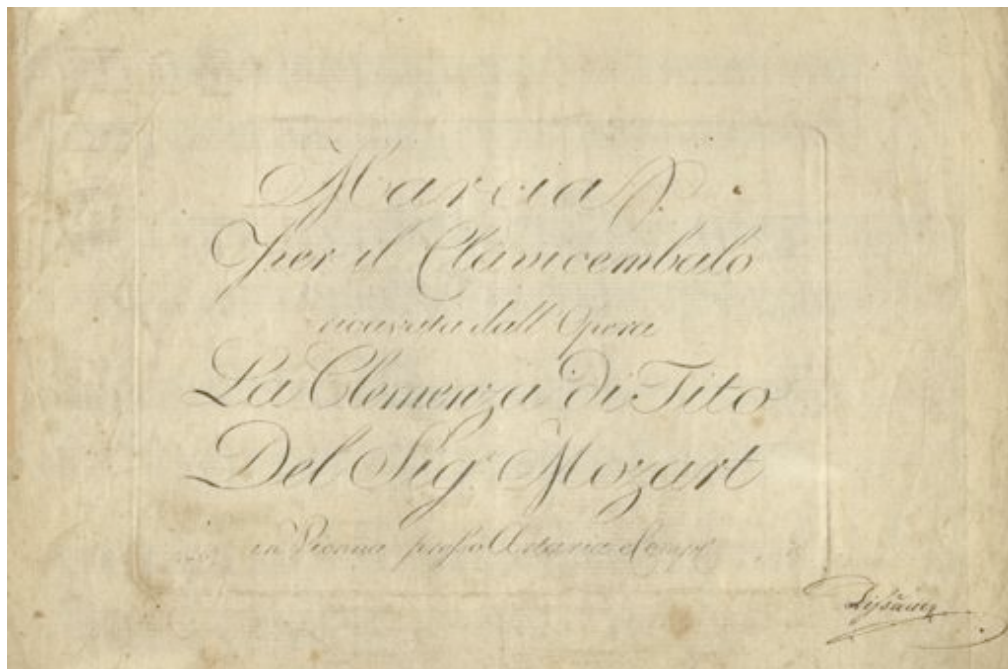 Marcia
Per il Clavicembalo
ricavata dall Opera
La Clemenza di Tito
Del Sig.r Mozart
in Vienna presso Artaria e Comp.